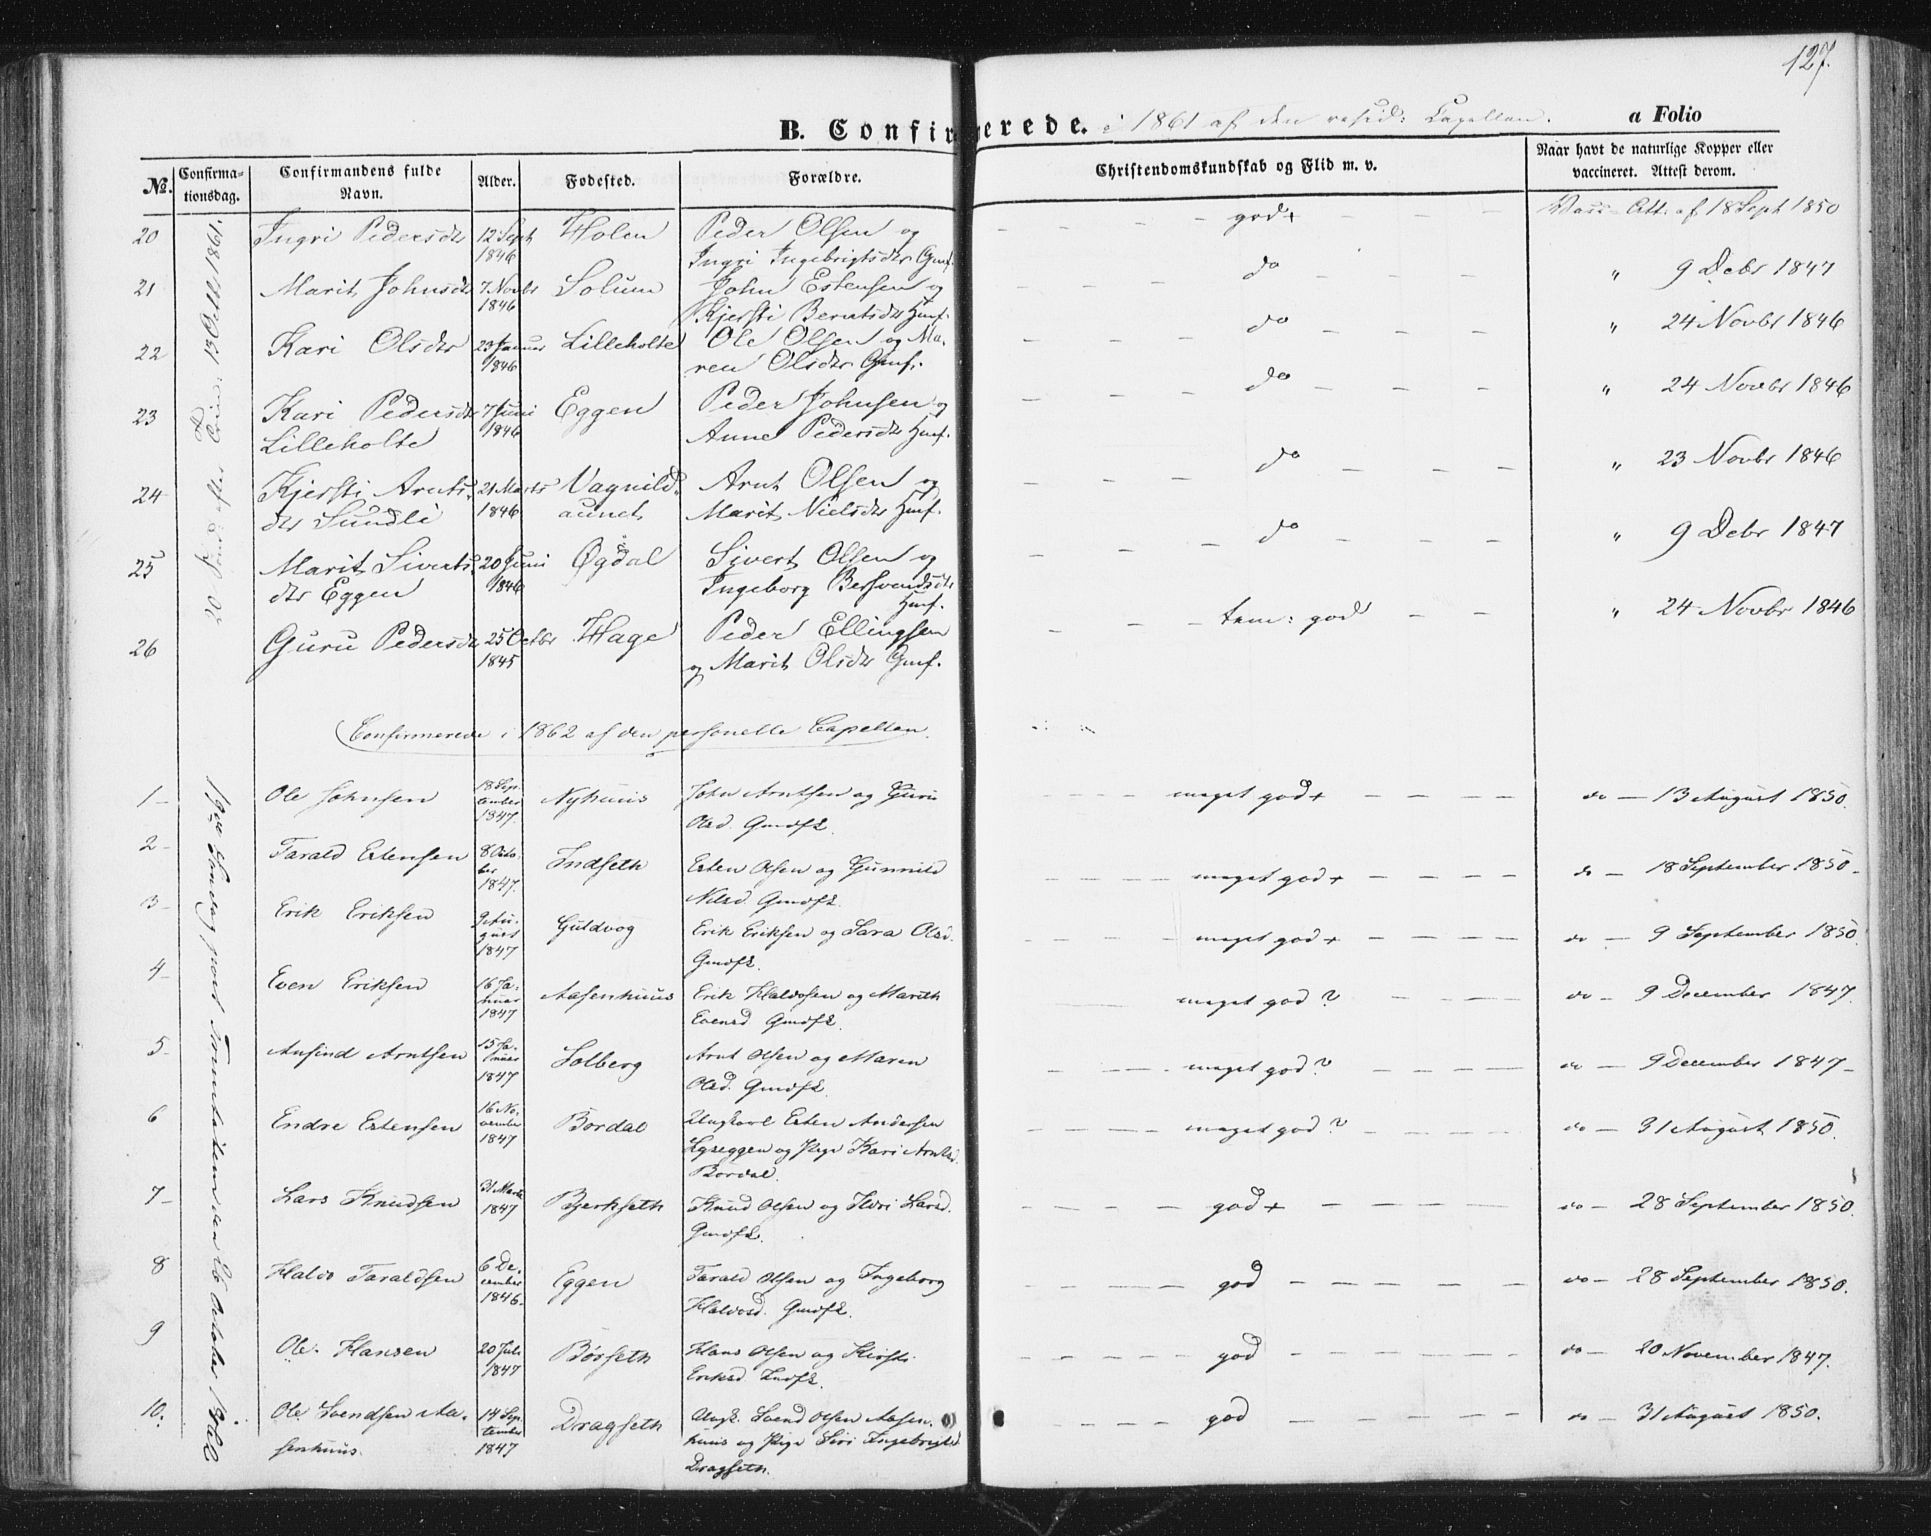 127.
B. Confirmerede. i 1861 af den resid: Capellan. a Folio
№. Confirmationsdag. Confirmandens fulde Navn. Alder. Fødested. Forældre. Christendomskundskab og Flid m. v. Naar havt de naturlige Kopper eller vaccineret. Attest derom.
20 Ingri Pedersdtr 12 Sept 1846 Holen Peder Olsen og Ingri Ingebrigtsdtr Gmf. god+ Vacc. Att. af 18 Sept 1850
21 Marit Johnsdtr 7 Novbr 1846 Solum John Estensen og Kjersti Berntsdtr Hmf. do " 9 Debr 1847
22 Kari Olsdtr 23 Januar 1846 Lilleholte Ole Olsen og Maren Olsdtr Gmf. do " 24 Novbr 1846
23 Kari Pedersdtr Lilleholte 7 Juni 1846 Eggen Peder Johnsen og Anne Pedersdtr Hmf. do " 24 Novbr 1846
24 Kjersti Arntsdtr Sundli 21 Marts 1846 Vagnildaunet Arnt Olsen og Marit Nielsdtr Hmf. do " 23 Novbr 1846
25 Marit Sivertsdtr Eggen 20 Juni 1846 Øgdal Sivert Olsen og Ingeborg Bersvendsdtr Hmf. do " 9 Debr 1847
26 Guru Pedersdtr 25 Octbr 1845 Hage Peder Ellingsen og Marit Olsdtr Gmf. tem: god " 24 Novbr 1846
20 Sønd. efter Trin: 13 Oct 1861.
Confirmerede i 1862 af den personelle Capellan.
1 Ole Johnsen 18 September 1847. Nyhuus John Arntsen og Guru Olsd. Gmdfk. meget god+ do 13 August 1850.
2 Tarald Estensen 8 October 1847. Indseth Esten Olsen og Gunnild Nilsd. Gmdfk. meget god+ do 18 September 1850
3 Erik Eriksen 9 August 1847 Guldvog Erik Eriksen og Sara Olsd. Gmdfk. meget god+ do 9 September 1850.
4 Even Eriksen 16 Januar 1847 Aasenhuus Erik Haldosen og Marith Evensd. Gmdfk. meget god? do 9 December 1847.
5 Anfind Arntsen 15 Januar 1847 Solberg Arnt Olsen og Maren Olsd. Gmdfk. meget god? do 9 December 1847
6 Endre Estensen 16 November 1847 Bordal Ungkarl Esten Andersen Lyseggen og Pige Kari Arntsd. Bordal. meget god? do 31 August 1850.
7 Lars Knudsen 31 Marts 1847 Bjerkseth Knud Olsen og Ildri Larsd. Gmdfk. god+ do 28 September 1850.
8 Haldo Taraldsen 6 December 1846 Eggen Tarald Olsen og Ingeborg Haldosd. Gmdfk. god do 28 September 1850.
9 Ole Hansen 20 Juli 1847 Børseth Hans Olsen og Kirsti Eriksd. Indfk. god do 20 November 1847.
10. Ole Svendsen Aasenhuus. 14 September 1847 Dragseth Ungk. Svend Olsen Aasenhuus og Pige Siri Ingebrigtsd Dragseth. god do 31 August 1850.
19de Søndag post Trinitatem den 26 October 1862